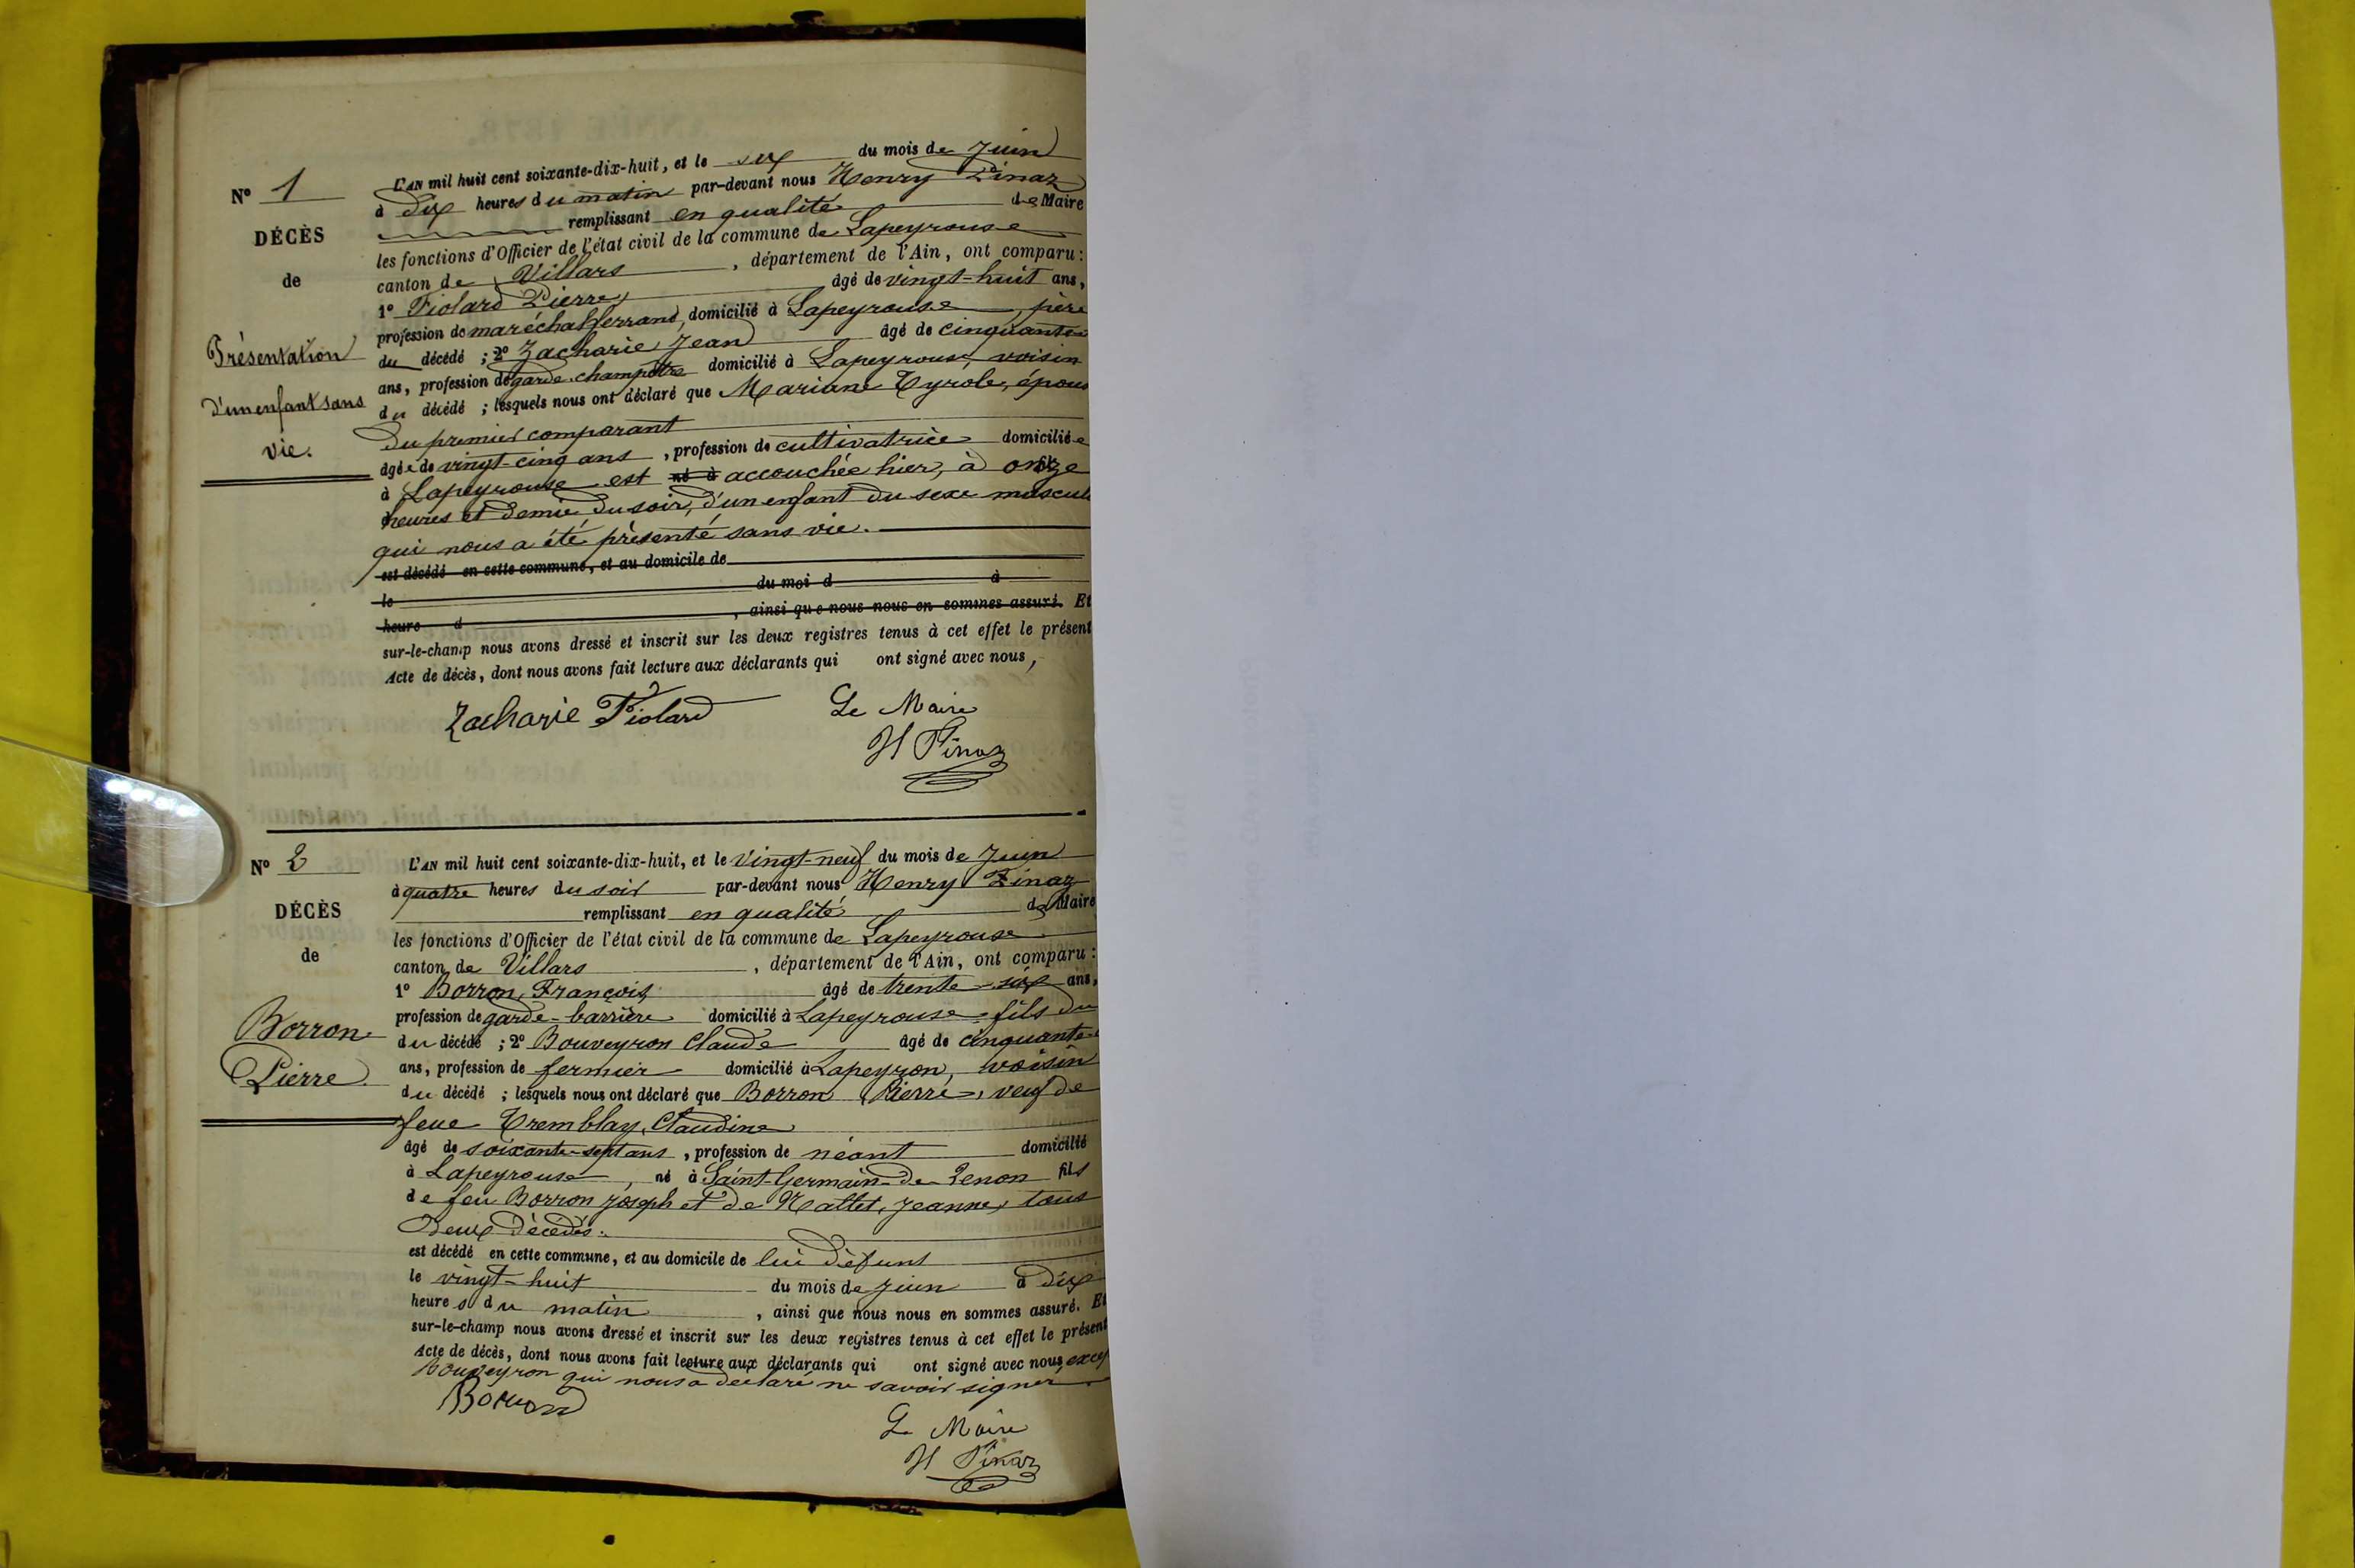 N° 1
DÉCÈS
de
Présentation
d'un enfant sans
vie.
L'AN mil huit cent soixante-dix-huit, et le six du mois de Juin
à dix heures du matin par-devant nous Henry Pinaz
remplissant en qualité de Maire
les fonctions d'Officier de l'état civil de la commune de Lapeyrouse
canton de Villars, département de l'Ain, ont comparu :
1° Fiolard Pierre, âgé de vingt-huit ans,
profession de maréchal-ferrant, domicilié à Lapeyrouse, père
du décédé ; 2° Zacharie, Jean âgé de cinquante
ans, profession de garde-champêtre domicilié à Lapeyrouse, voisin
du décédé ; lesquels nous ont déclaré que Mariane Tyrole, épous
du premier comparant
âgée de vingt-cinq ans, profession de cultivatrice domiciliée
à Lapeyrouse est né à accouchée hier, à onze
heures et demie du soir, d'un enfant du sexe mascul
qui nous a été présenté sans vie.
est décédé en cette commune, et au domicile de
le du moi d à
heure d , ainsi que nous nous en sommes assuré. Et
sur-le-champ nous avons dressé et inscrit sur les deux registres tenus à cet effet le présent
Acte de décès, dont nous avons fait lecture aux déclarants qui ont signé avec nous,
Zacharie Fiolard Le Maire
H Pinaz
N° 2
DÉCÈS
de
Borron
Pierre
L'AN mil huit cent soixante-dix-huit, et le vingt-neuf du mois de Juin
à quatre heures du soir par-devant nous Henry Pinaz
remplissant en qualité de Maire
les fonctions d'Officier de l'état civil de la commune de Lapeyrouse
canton de Villars, département de l'Ain, ont comparu :
1° Borron, François, âgé de trente-six ans,
profession de garde-barrière domicilié à Lapeyrouse fils du
du décédé ; 2° Bouveyron Claude âgé de cinquante
ans, profession de fermier domicilié à Lapeyron, voisin
du décédé ; lesquels nous ont déclaré que Borron Pierre, veuf de
feue Tremblay, Claudine
âgé de soixante-sept ans, profession de néant domicilié
à Lapeyrouse, né à Saint-Germain-de-Renon fils
de feu Borron Joseph et de Mallet, Jeanne, tous
deux décédés.
est décédé en cette commune, et au domicile de lui défunt
le vingt-huit du mois de juin à dix
heures du matin, ainsi que nous nous en sommes assuré. Et
sur-le-champ nous avons dressé et inscrit sur les deux registres tenus à cet effet le présent
Acte de décès, dont nous avons fait lecture aux déclarants qui ont signé avec nous, excep
Bouveyron qui nous a déclaré ne savoir signer
Borron
Le Maire
H Pinaz